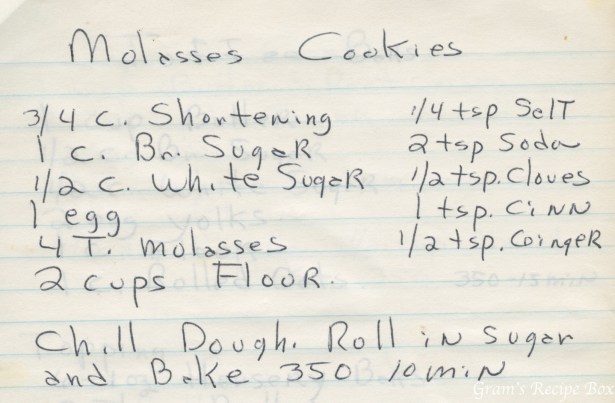 Molasses Cookies
3/4 c. Shortening
1 c. Br. Sugar
1/2 c. White Sugar
1 egg
4 T. molasses
2 cups Flour.
1/4 tsp Salt
2 tsp Soda
1/2 tsp. Cloves
1 tsp. Cinn
1/2 tsp. Ginger
Chill Dough. Roll in Sugar
and Bake 350 10 min
yolks
350-15 min
Gram's Recipe Box